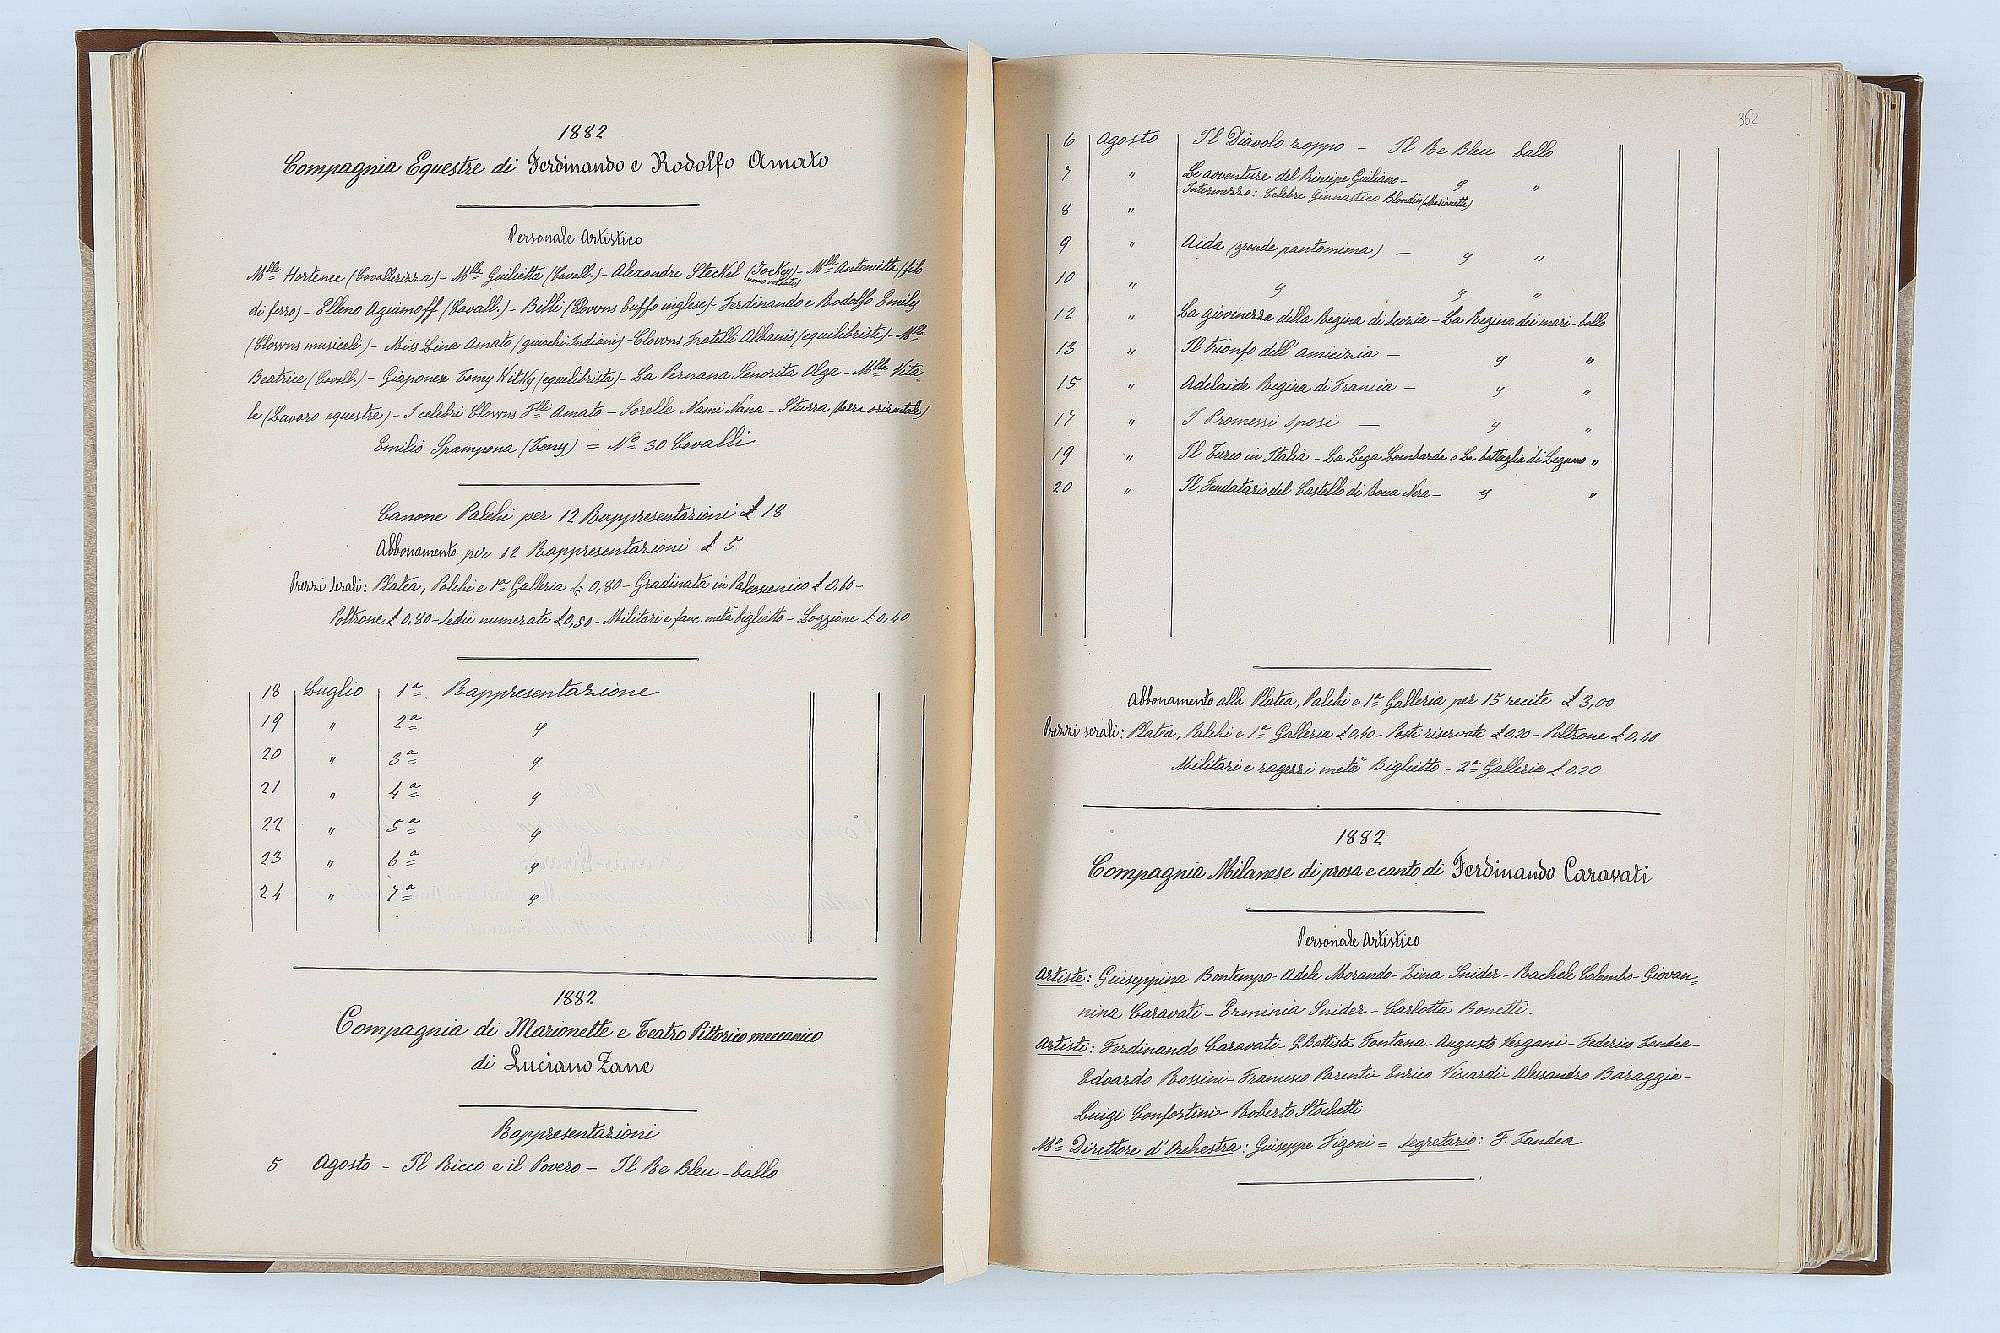 1882
Compagnia Equestre di Ferdinando e Rodolfo Amato
Personale Artistico
Mlle Hortence (Cavallerizza) - Mlle Giulietta (Cavall.) - Alexandre Steckel (Jocky) - Mlle Antonietta (filo
di ferro) - Elleno Aguimoff (Cavall.) - Billi (Clowns buffo inglese) - Ferdinando e Rodolfo Emily
(Clowns musicali) - Miss Lina Amato (giuochi Indiani) - Clowns Fratelli Albanis (equilibristi) - Mlle
Beatrice (Cavall.) - Giaponex Tomy Nitky (equilibrista) - La Peruana Senorita Olga - Mlla Vita-
le (Lavoro equestre) - I celebri Clowns Flli Amato - Sorelle Nami Nana - Sturra
Emilio Spampona (Tony) = No 30 Cavalli
Canone Palchi per 12 Rappresentazioni £ 18
Abbonamento per 12 Rappresentazioni £ 5
Prezzi serali: Platea, Palchi e 1a Galleria £ 0,80 - Gradinata in Palcoscenico £ 0,60 -
Poltrone £ 0,80 - Sedie numerate £ 0,50 - Militari e fanc. metà biglietto - Loggione £ 0,40
18 Luglio 1a Rappresentazione
19 " 2a "
20 " 3a "
21 " 4a "
22 " 5a "
23 " 6a "
24 " 7a "
1882
Compagnia di Marionette e Teatro Pittorico meccanico
di Luciano Zane
Rappresentazioni
5 Agosto - Il Ricco e il Povero - Il Re Bleu - ballo
362
6 Agosto Il Diavolo zoppo - Il Re Bleu ballo
7 " Le avventure del Principe Giuliano - " "
Intermezzo: Celebre Ginnastico Blondin (Marionette)
8 "
9 " Aida (grande pantomima) - " "
10 " " " "
12 " La giovinezza della Regina di Scozia - La Regina dei mari - ballo
13 " Il trionfo dell'amicizia - " "
15 " Adelaide Regina di Francia - " "
17 " I Promessi Sposi - " "
19 " Il Turco in Italia - La Lega Lombarda o La battaglia di Legnano "
20 " Il Feudatario del Castello di Roua Nera - " "
Abbonamento alla Platea, Palchi e 1a Galleria per 15 recite £ 3,00
Prezzi serali: Platea, Palchi e 1a Galleria £ 0,40 - Posti riservati £ 0,20 - Poltrone £ 0,40
Militari e ragazzi metà Biglietto - 2a Galleria £ 0.20
1882
Compagnia Milanese di prosa e canto di Ferdinando Caravati
Personale Artistico
Artiste: Giuseppina Bontempo - Adele Morando - Zina Snider - Rachele Colombo - Giovan-
nina Caravati - Erminia Snider - Carlotta Bonetti.
Artisti: Ferdinando Caravati - G. Battista Fontana - Augusto Vergani - Federico Landea -
Edoardo Rossini - Francesco Parenti - Enrico Viscardi - Alessandro Baraggia -
Luigi Confortini - Roberto Stochetti
Mo Direttore d'Orchestra: Giuseppe Figoni = Segretario: F. Landea